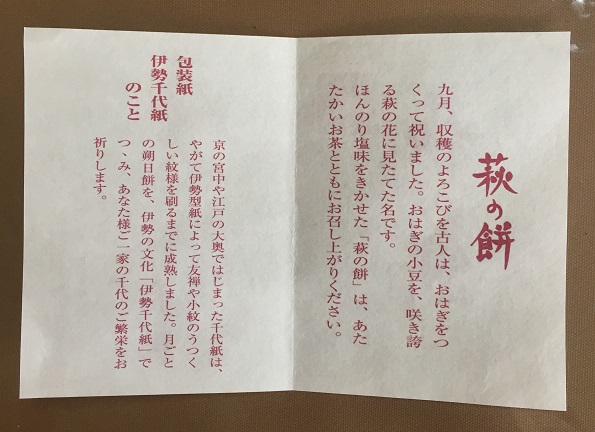 萩の餅
九月、収穫のよろこびを古人は、おはぎをつ
くって祝いました。おはぎの小豆を、咲き誇
る萩の花に見たてた名です。
ほんのり塩味をきかせた「萩の餅」は、あた
たかいお茶とともにお召し上がりください。
包装紙
伊勢千代紙
のこと
京の宮中や江戸の大奥ではじまった千代紙は、
やがて伊勢型紙によって友禅や小紋のうつく
しい紋様を刷るまでに成熟しました。月ごと
の朔日餅を、伊勢の文化「伊勢千代紙」で
つゝみ、あなた様ご一家の千代のご繁栄をお
祈りします。